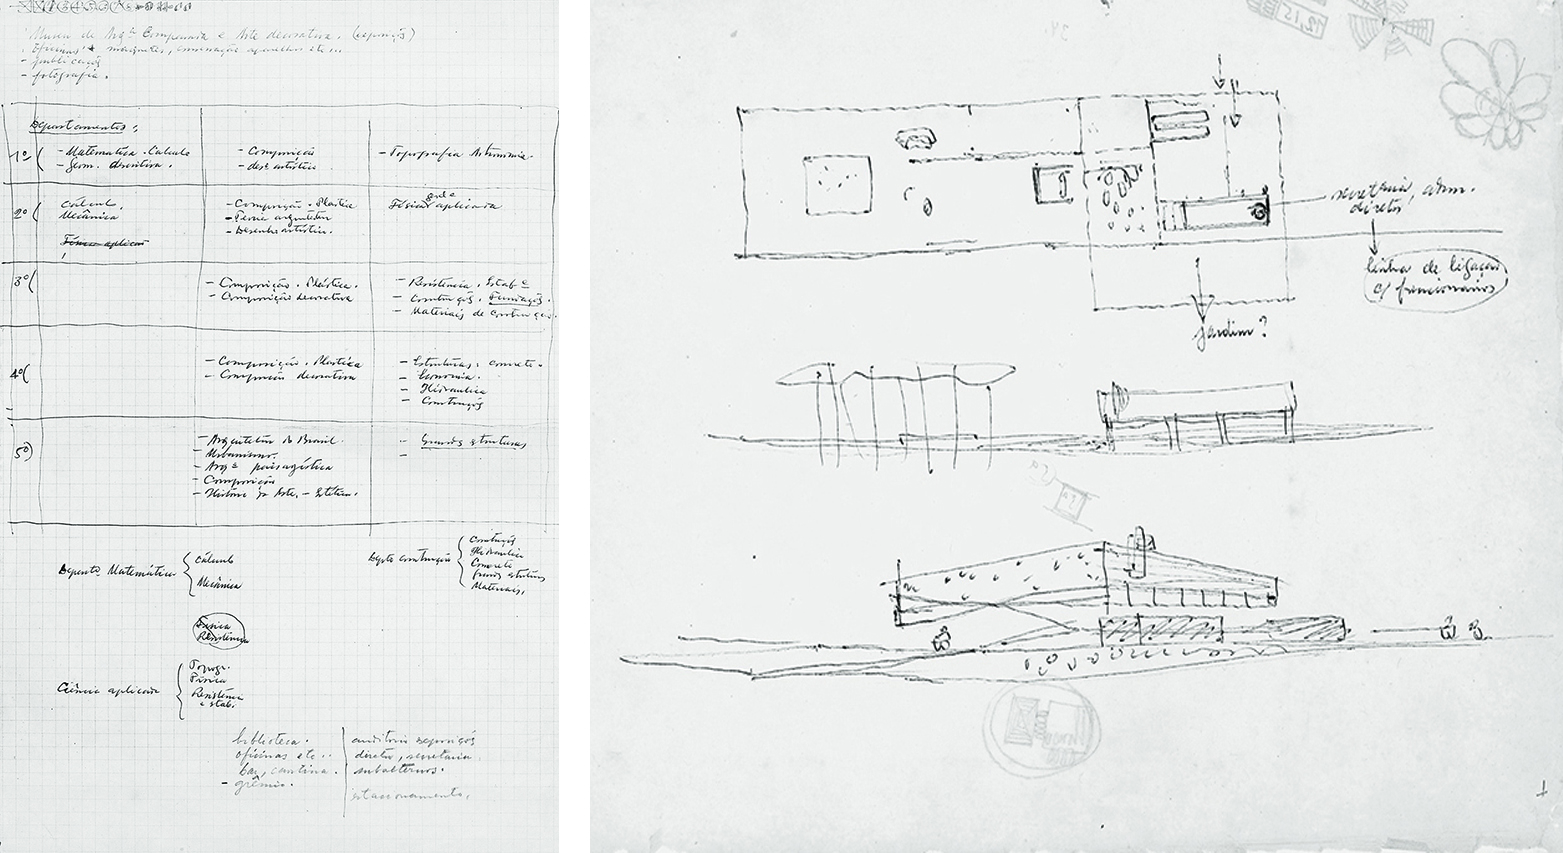 Museu de Arqª Comparada e Arte decorativa. (exposiçõs)
Oficinas maquetes, etc...
- publicaçõs
- fotografia.
Departamentos:
1º
- Matematica. Calculo
- Geom. descritiva.
- Composição
- desº artístico
- Topografia Astronomia.
2º
Calculo.
Mecânica
Física aplicada
- Composição. Plastica
- Teoria arquitetura
- Desenho artístico.
Física aplicada
3º
- Composição. Plástica.
- Composição decorativa
- Resistencia. Estabᵉ
- Construçõs. Fundaçõs.
- Materiais de construçõs.
4º
- Composição. Plastica
- Composição decorativa
- Estruturas: concreto.
- Economia.
- Hidraulica
- Construçõs
5º
- Arquitetura do Brasil.
- Urbanismo.
- Arqª paisagística
- Composição
- História da Arte. - Estética.
- Grandes estruturas
Departº Matemática
Cálculo
Mecânica
Depto construção
Construçõs
Hidraulica
Concreto
Grandes estruturas
Materiais.
Física
Resistência
Ciência aplicada
Topogr.
Física
Resistência
e estab.
biblioteca.
oficinas etc..
bar, cantina.
- grêmio.
auditorio exposiçõs
diretor, secretaria
subalternos.
estacionamento.
secretaria, adm.
diretor
linha de ligação
c/ funcionarios
jardim?